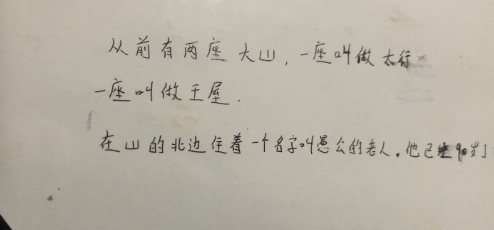 从前有两座大山，一座叫做太行
一座叫做王屋.
在山的北边住着一个名字叫愚公的老人。他已经90岁了